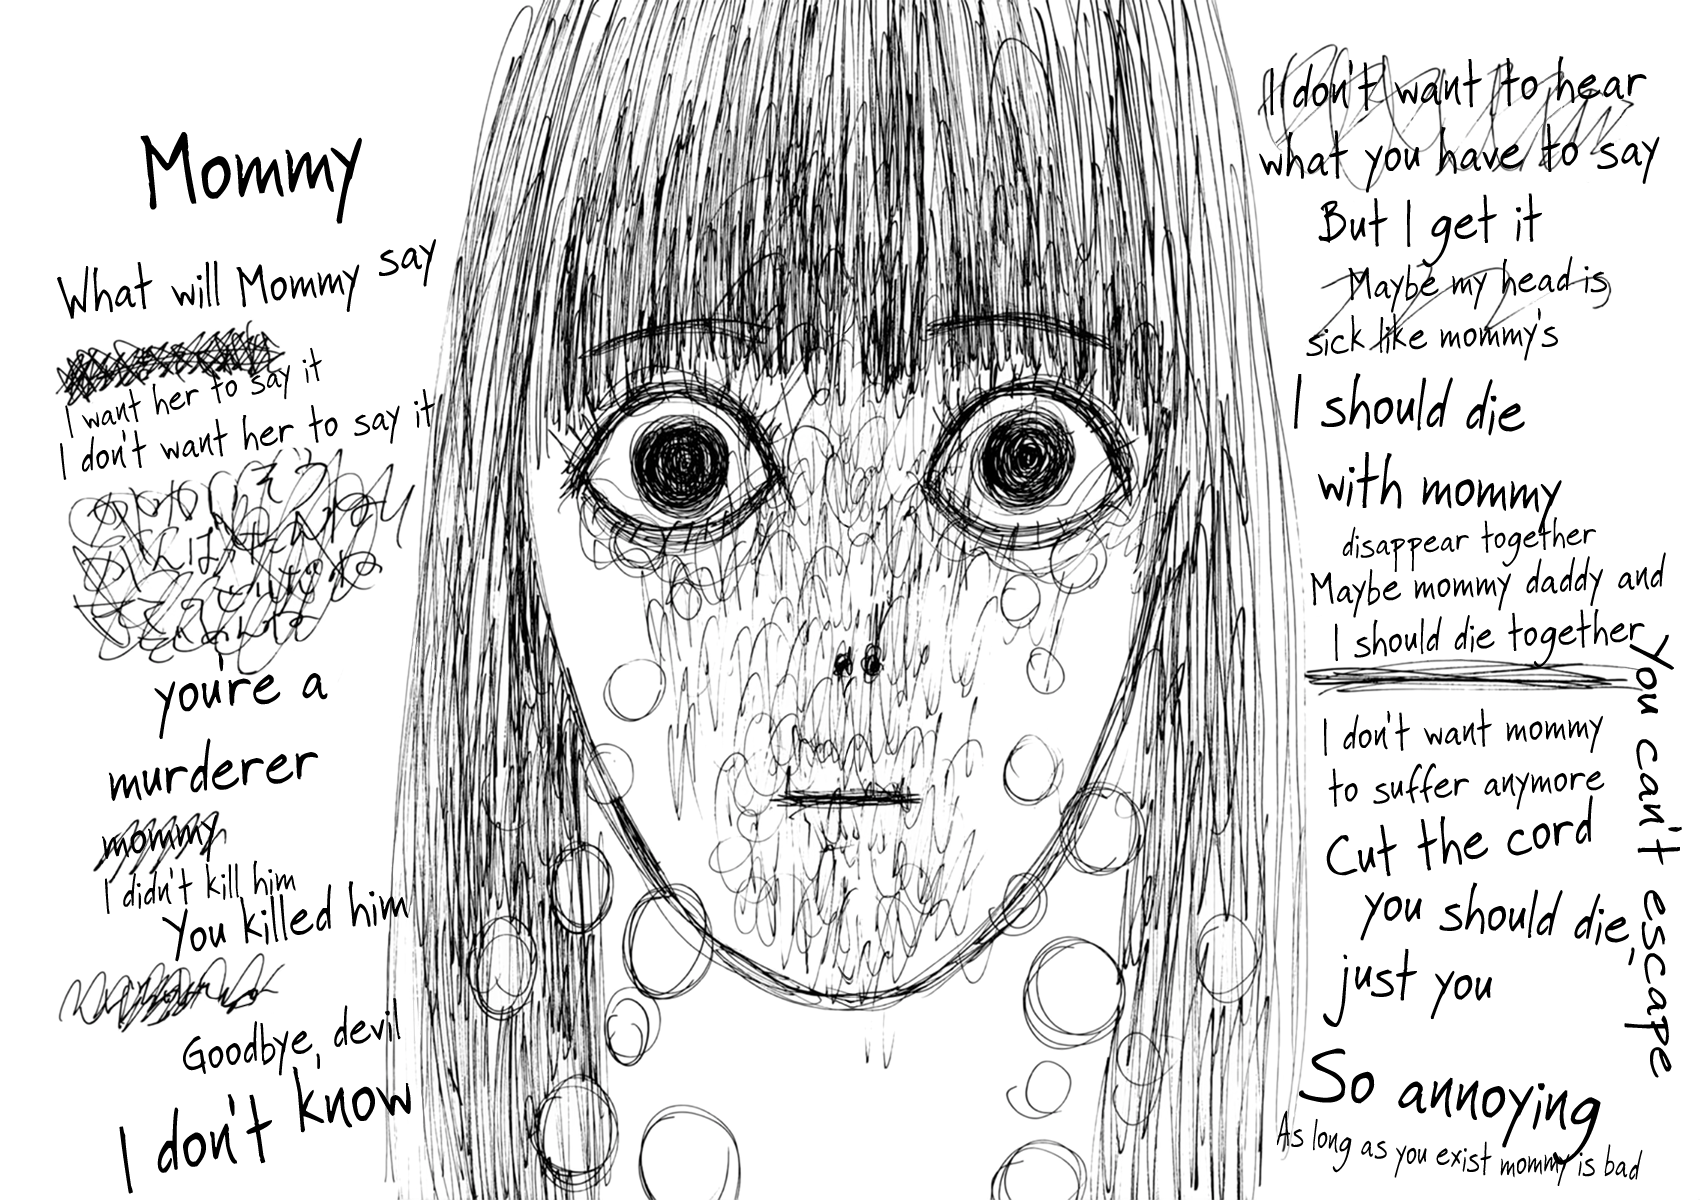 Mommy
What will Mommy say
I want her to say it
I don't want her to say it
you're a
murderer
mommy
I didn't kill him
You killed him
Goodbye, devil
I don't know
I don't want to hear
what you have to say
But I get it
Maybe my head is
sick like mommy's
I should die
with mommy
disappear together
Maybe mommy daddy and
I should die together
I don't want mommy
to suffer anymore
Cut the cord
you should die
just you
So annoying
As long as you exist mommy is bad
You can't escape